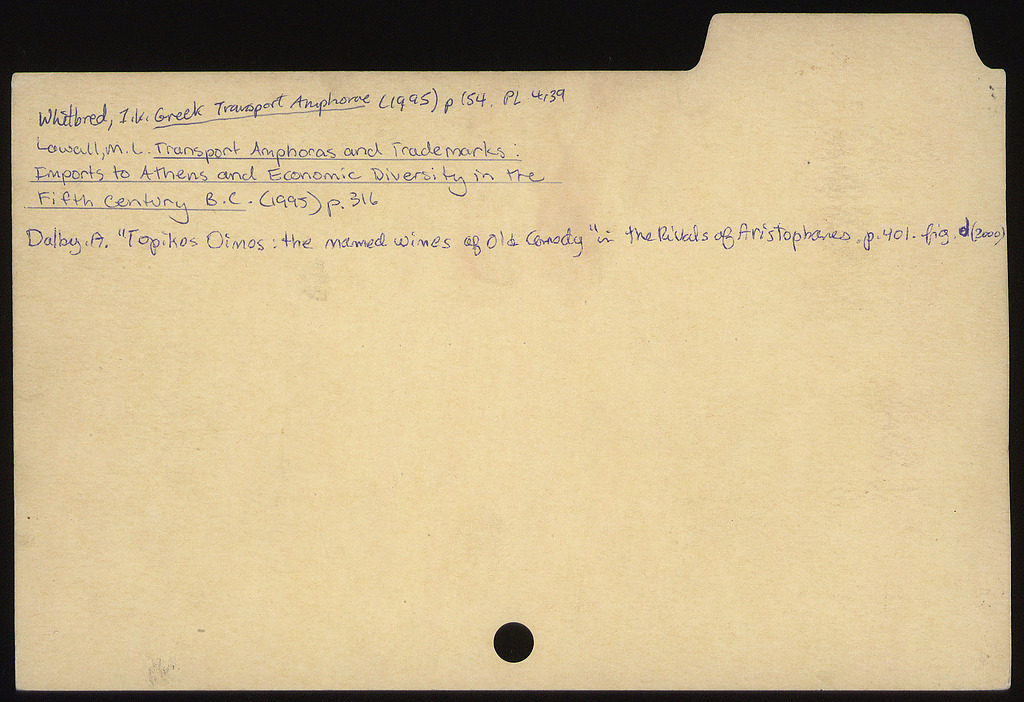 Whitbred, I.K. Greek Transport Amphorae (1995) p 154, PL 4,39
Lawall, M.L. Transport Amphoras and Trademarks:
Imports to Athens and Economic Diversity in the
Fifth Century B.C. (1995) p. 316
Dalby, A. "Topikos Oinos: the named wines of Old Comody" in the Rivals of Aristophanes, p. 401. fig. d (2000)